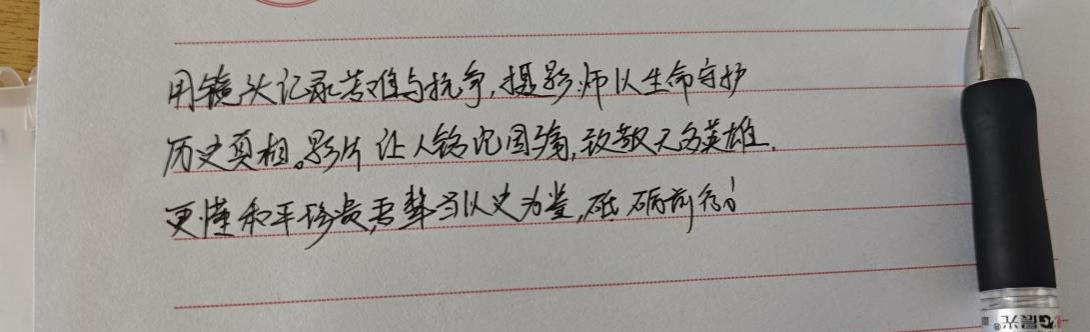 用镜头记录苦难与抗争,摄影师以生命守护
历史真相。影片让人铭记国殇,致敬无名英雄.
更懂和平珍贵,吾辈当以史为鉴,砥砺前行!
晨光